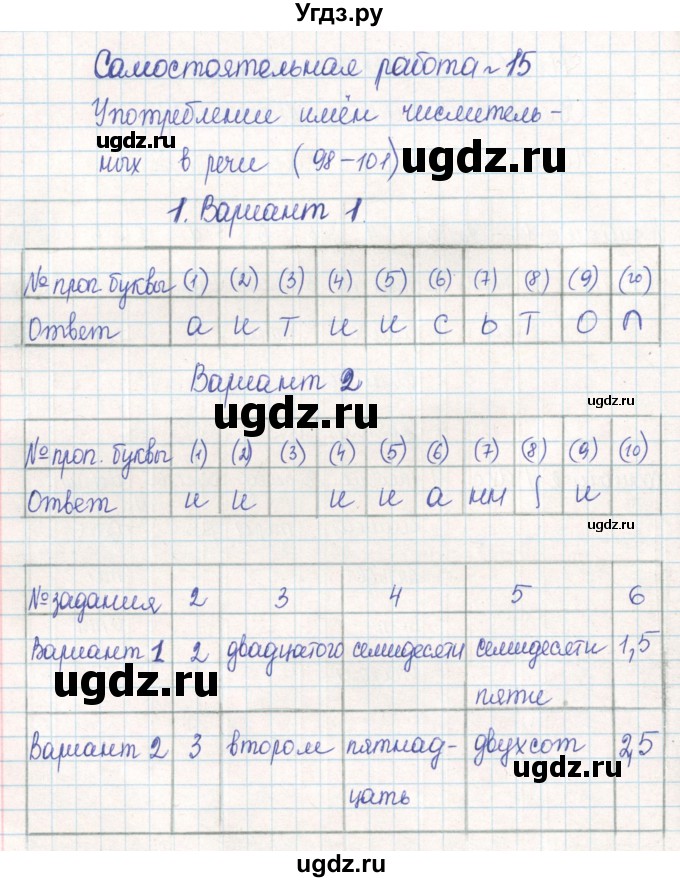 Угдз.ру
Самостоятельная работа № 15
Употребление имён числитель-
ных в речи (98-101)
ugdz.ru
ugdz.ru
1. Вариант 1.
№ проп. буквы (1) (2) (3) (4) (5) (6) (7) (8) (9) (10)
Ответ а и т и и с ь т о п
Вариант 2
ugdz.ru
ugdz.ru
№ проп. буквы (1) (2) (3) (4) (5) (6) (7) (8) (9) (10)
Ответ и и и и а нн ∫ и
ugdz.ru
№ задания 2 3 4 5 6
Вариант 1 2 двадцатого семидесяти семидесяти 1,5
пяти
ugdz.ru
Вариант 2 3 втором пятнад- двухсот 2,5
цать
ugdz.ru
ugdz.ru